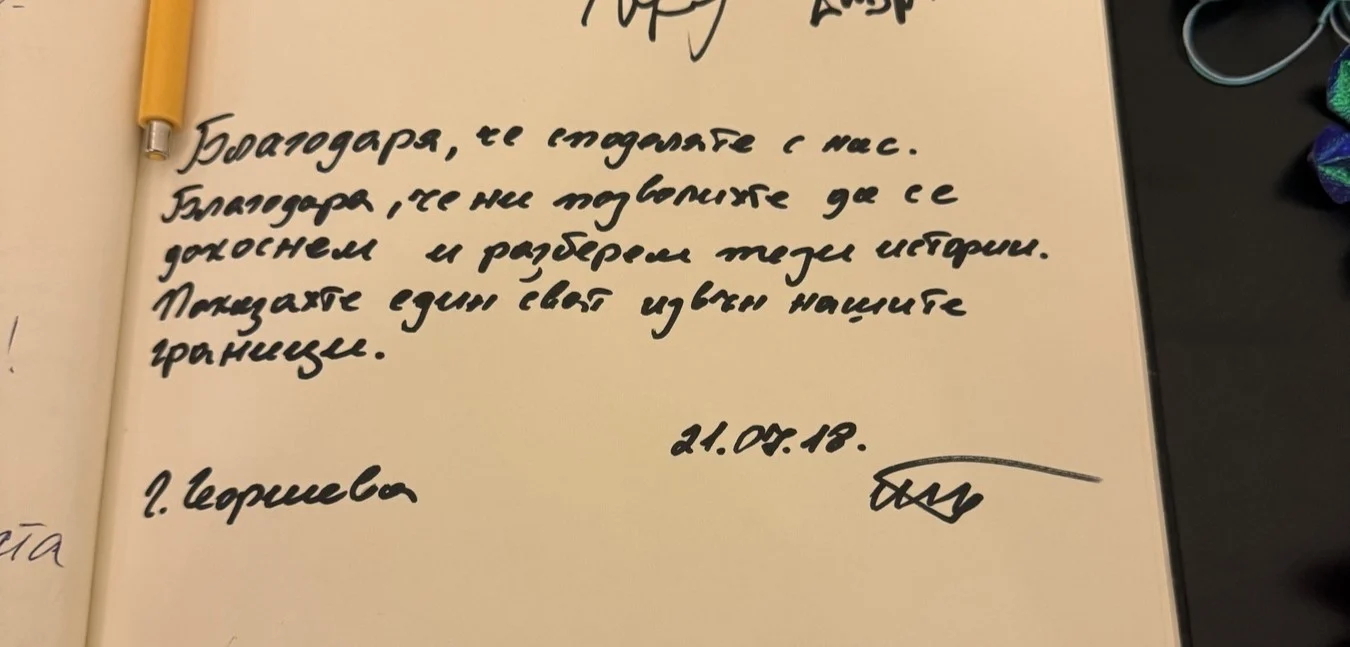 Благодаря, че споделяте с нас.
Благодаря, че ни позволихте да се
докоснем и разберем тези истории.
Показахте един свят извън нашите
граници.
21.07.18.
Г. Георгиева